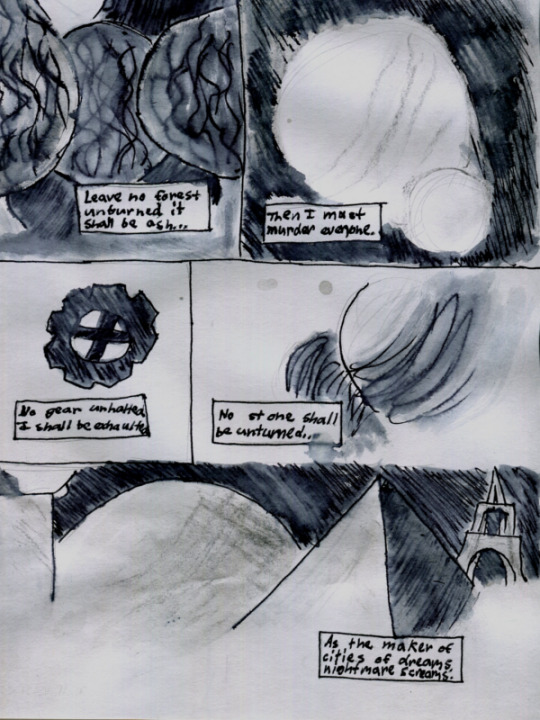 Leave no forest
unburned it
shall be ash...
Then I must
murder everyone.
No gear unhalted,
I shall be exhausted
No stone shall
be unturned..
As the maker of
cities of dreams,
nightmare screams.